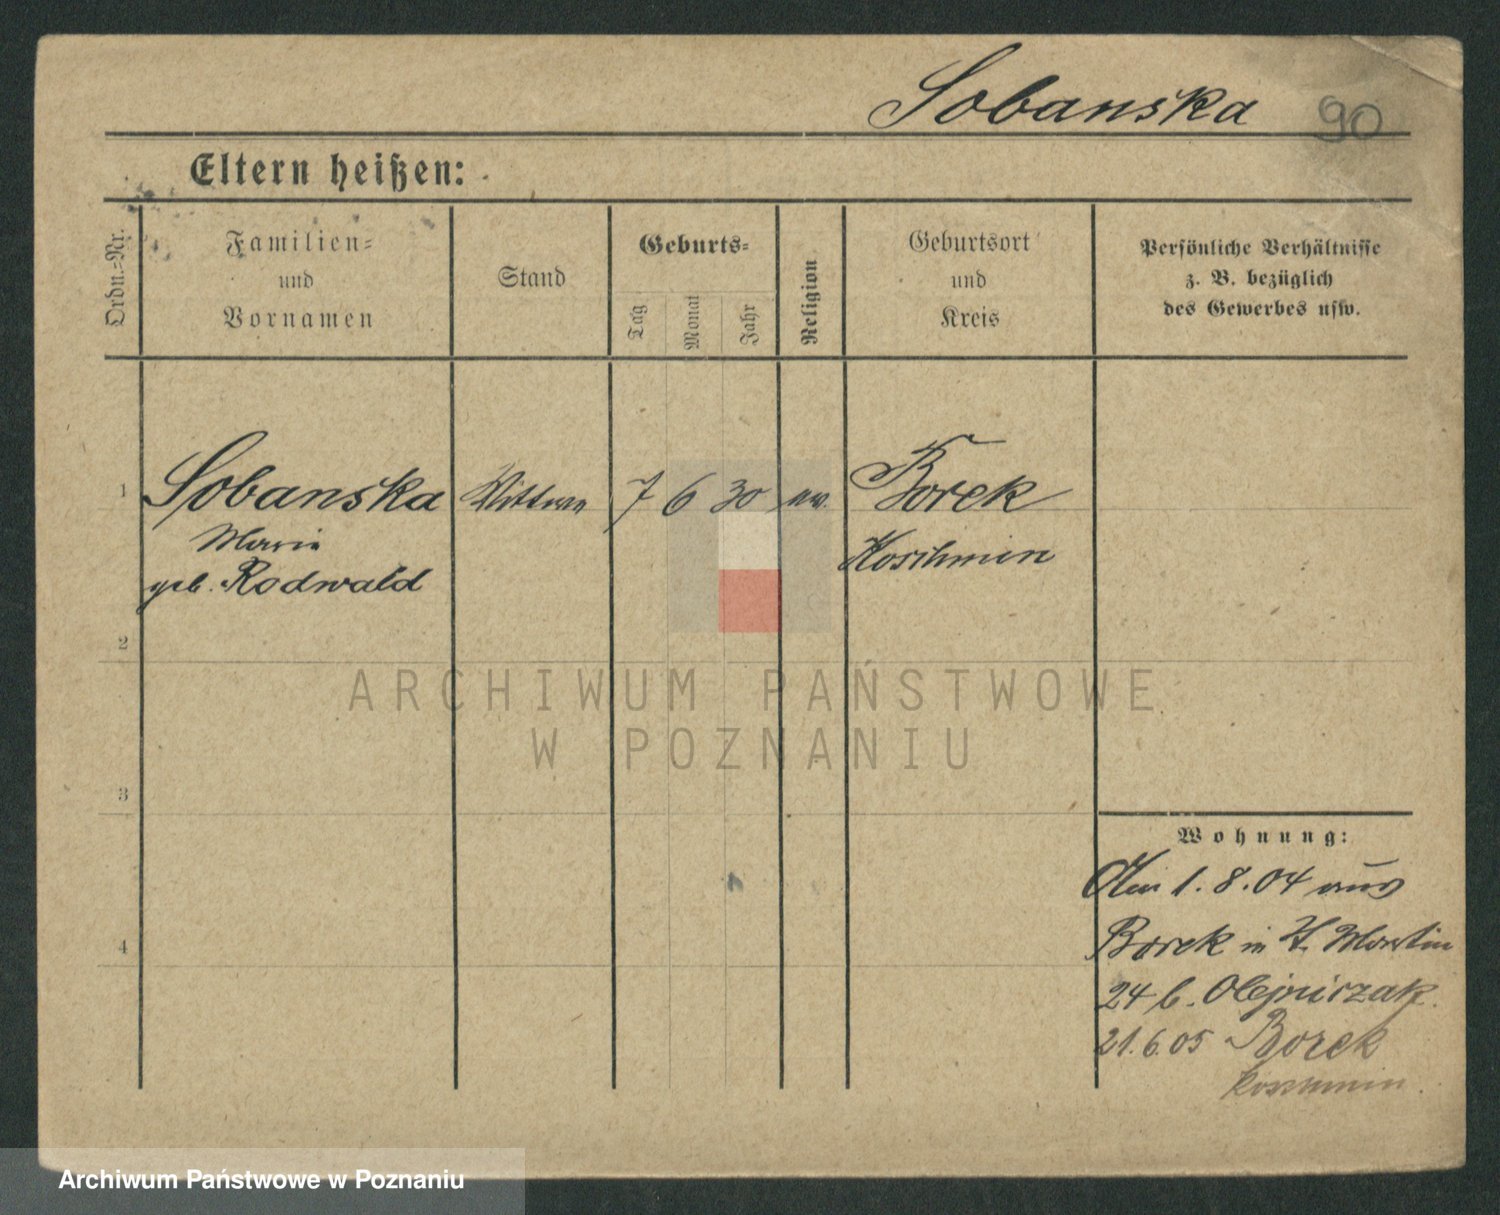 Sobanska 90
Eltern heißen:
Ordn.-Nr.
Familien-
und
Vornamen
Stand
Geburts-
Tag
Monat
Jahr
Religion
Geburtsort
und
Kreis
Persönliche Verhältnisse
z. B. bezüglich
des Gewerbes usw.
1 Sobanska Wittwe 7 6 30 ev. Borek
Marie Koschmin
geb. Rodwald
2
ARCHIWUM PAŃSTWOWE
W POZNANIU
3
Wohnung:
Am 1.8.04 aus
4 Borek in St. Martin
24 b. Olejniczak.
21.6.05 Borek
Koschmin.
Archiwum Państwowe w Poznaniu